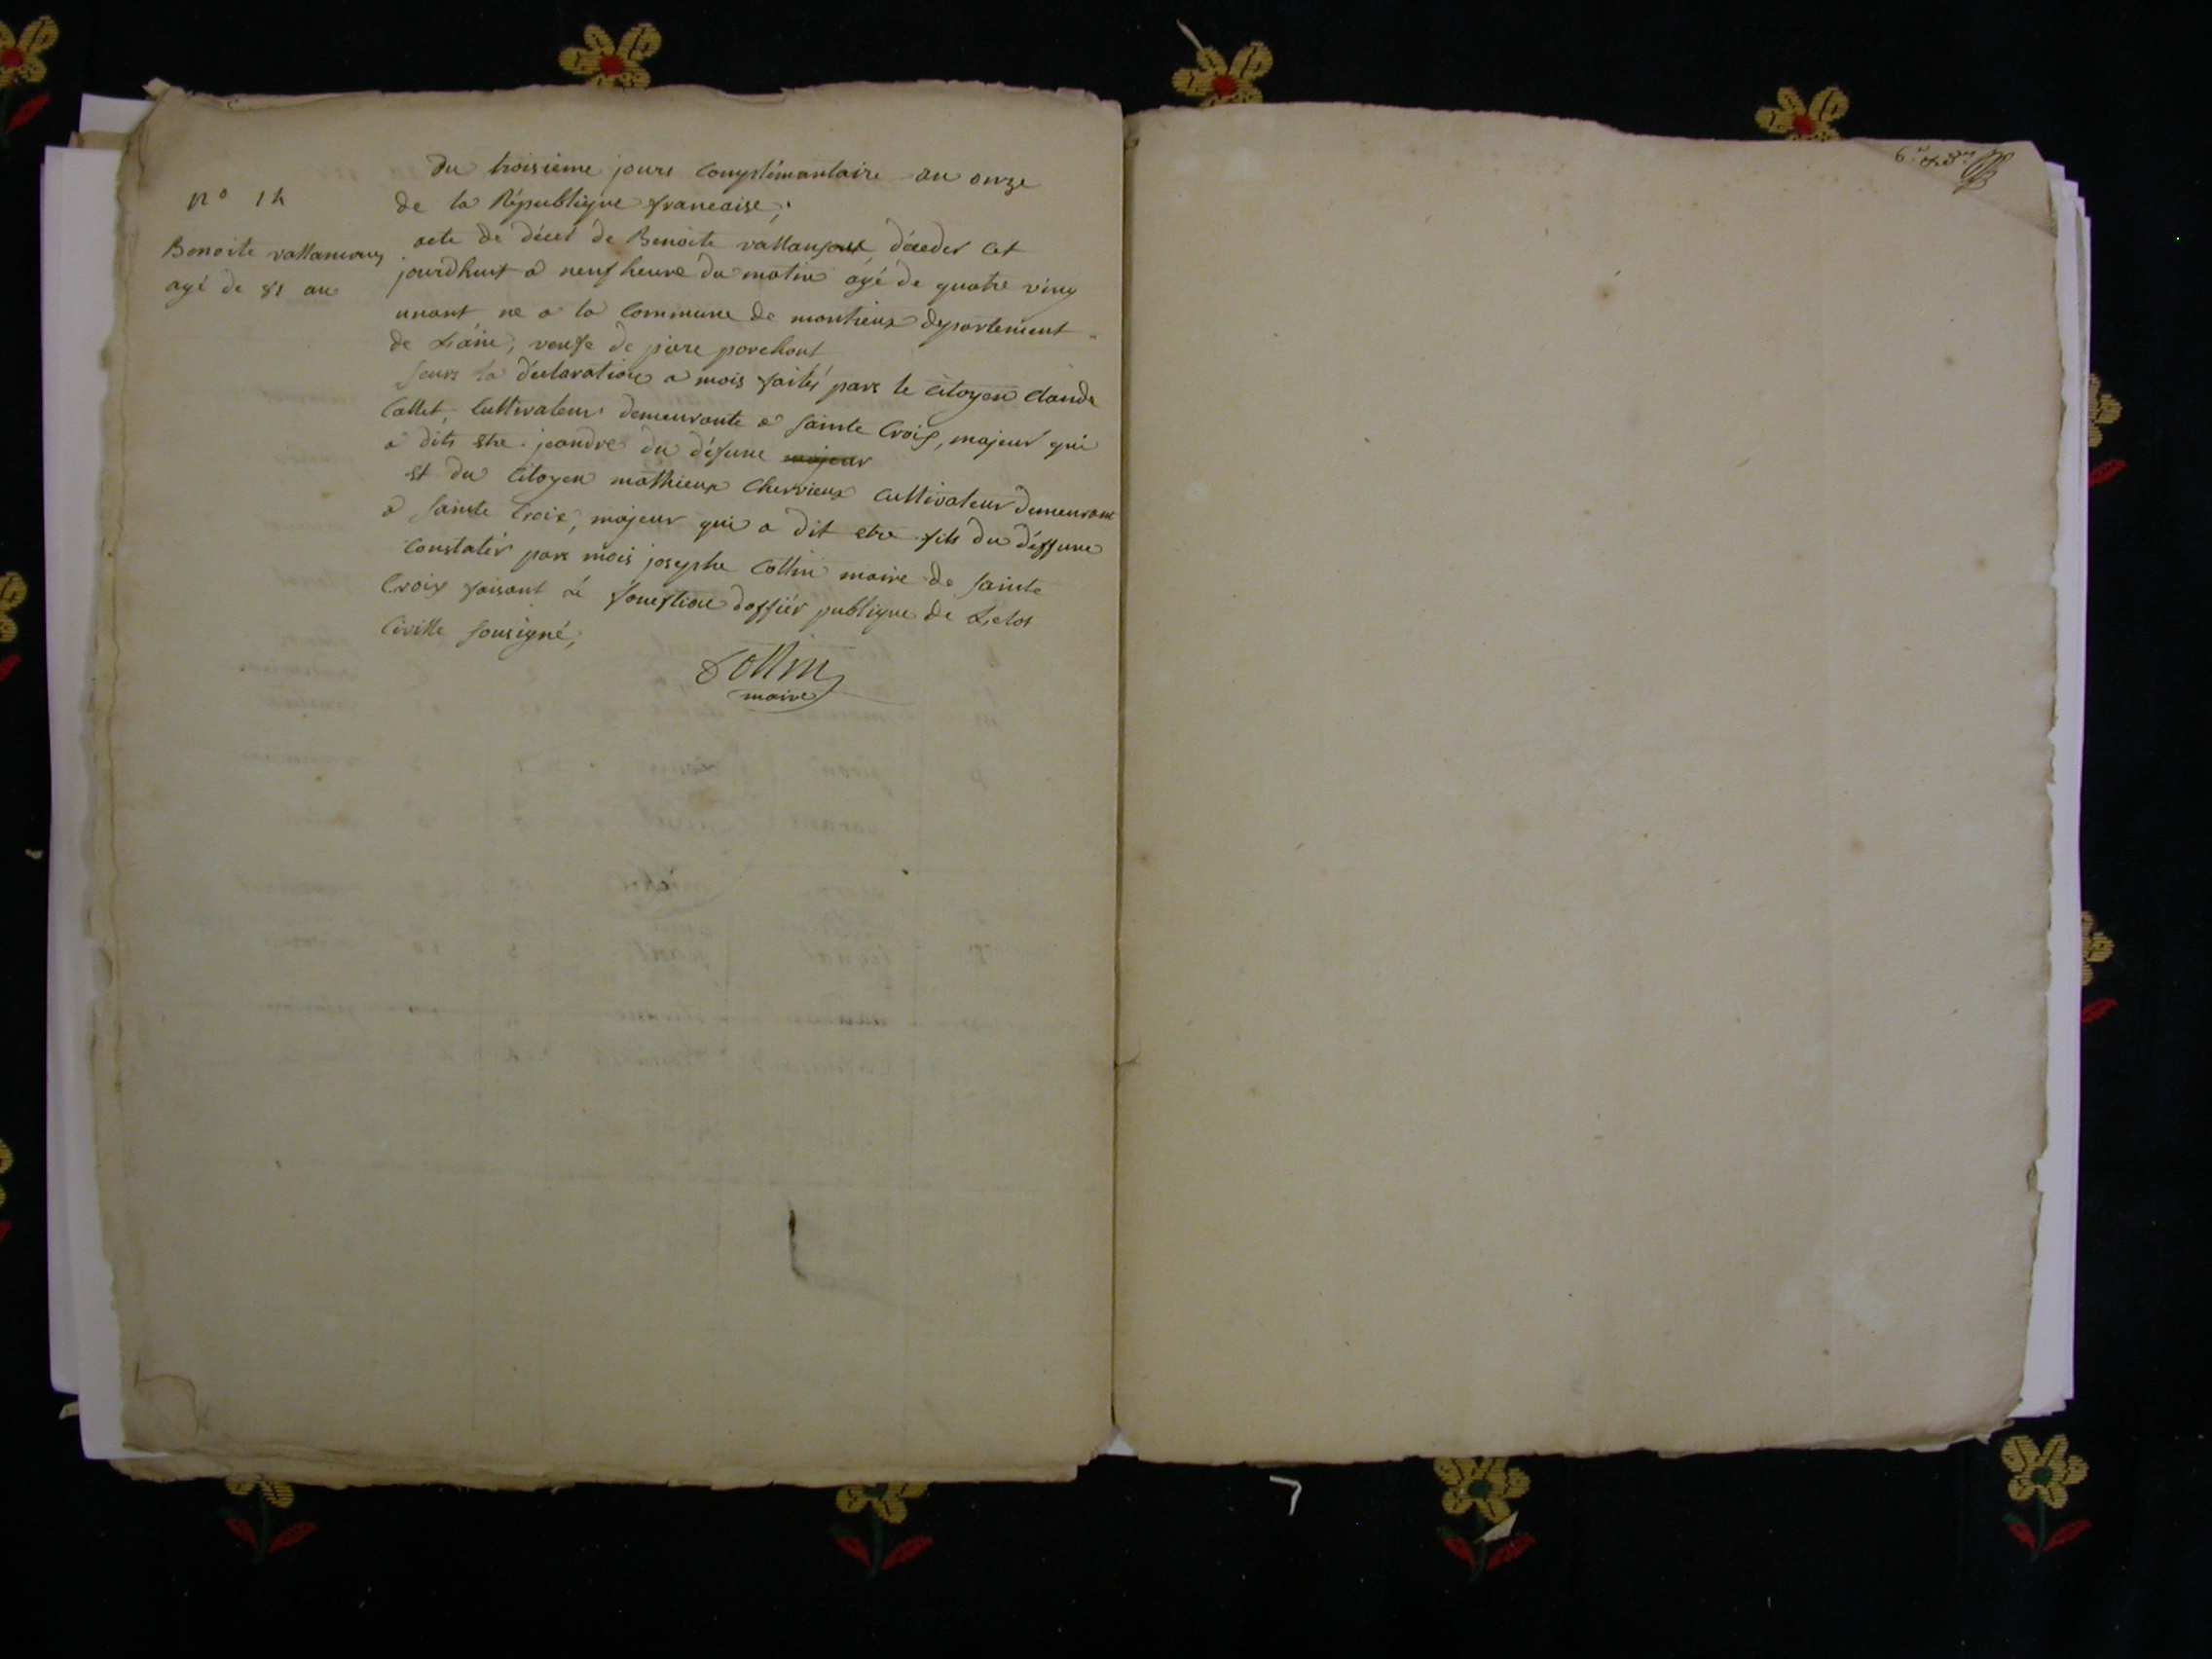 du troisieme jours Complémantaire an onze
de la République francaise;
n° 14
Benoite vallansous
agé de 81 an
acte de décès de Benoite vallansous, déceder cet
jourdhuit a neuf heure du matin agé de quatre ving
unant né a la Commune de montieux departement
de Láin, veufe de piere porchont
Surs la déclaration a mois faites pars le citoyen Claude
Collet, Cultivateur demeurante a Sainte Croix, majeur qui
a dits etre jeandre du défune majeur
et du Citoyen mathieux Chervieux Cultivateur demeurant
a Sainte Croix, majeur qui a dit etre fils du déffune
Constatér pars mois josephe Collin maire de Sainte
Croix faisant lé fonction doffiér publique de Letat
Civille Sousigné,
Collin
maire